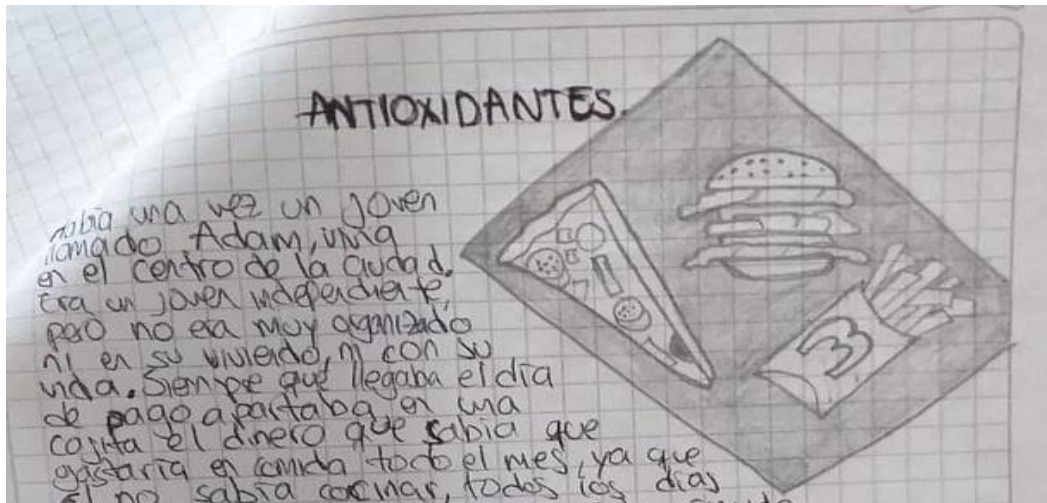 ANTIOXIDANTES.
había una vez un joven
llamado Adam, vivía
en el centro de la ciudad.
Era un joven independiente,
pero no era muy organizado
ni en su vivienda, ni con su
vida. Siempre que llegaba el día
de pago apartaba en una
cajita el dinero que sabía que
gastaría en comida todo el mes, ya que
él no sabía cocinar, todos los días
3